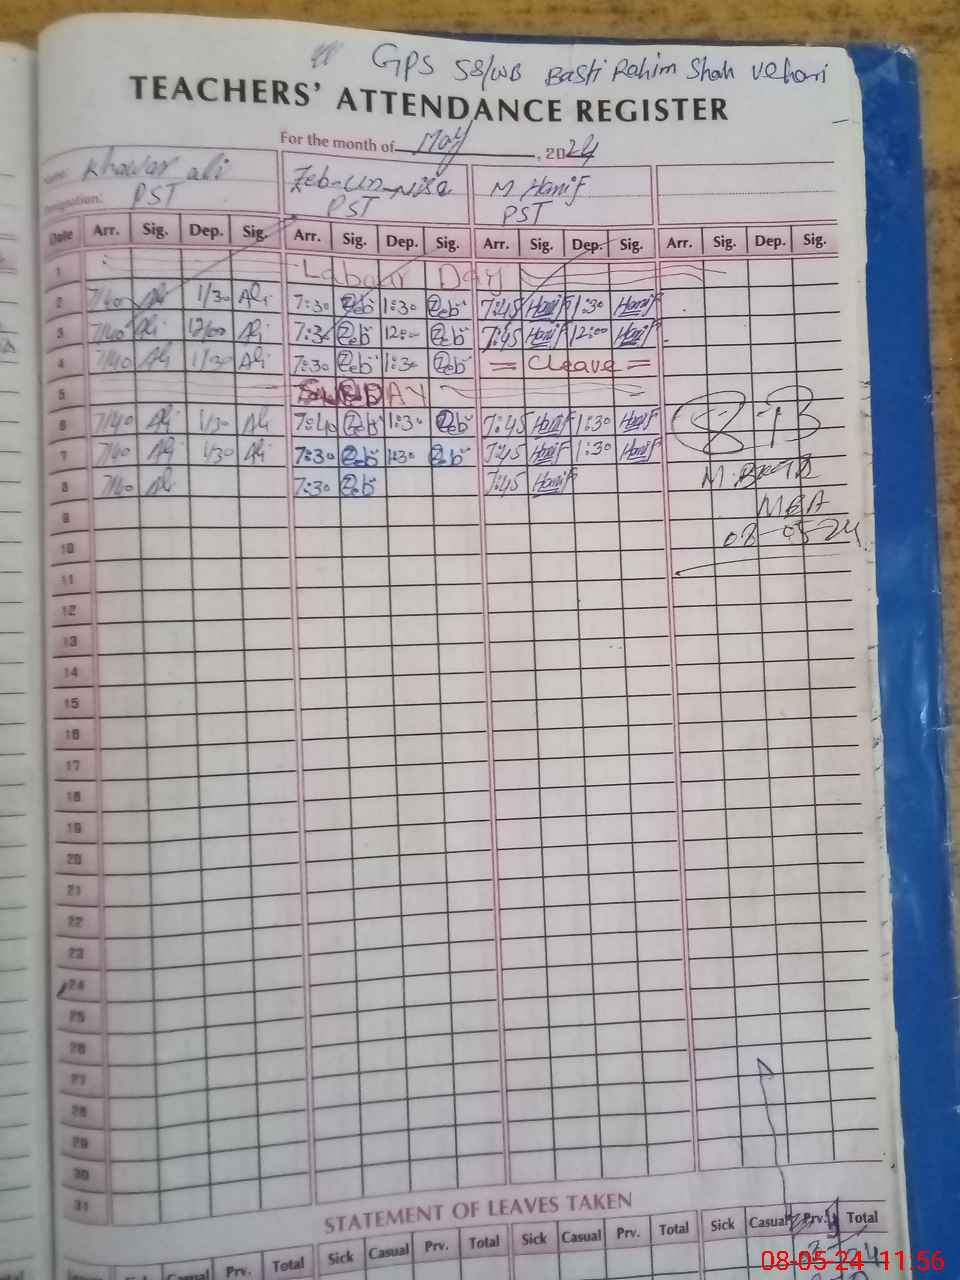 GPS 58/WB Basti Rahim Shah Vehari
TEACHERS' ATTENDANCE REGISTER
For the month of May, 2024
Name: Khawar ali Zeb-un-nisa M Hanif
Designation: PST PST PST
Date Arr. Sig. Dep. Sig. Arr. Sig. Dep. Sig. Arr. Sig. Dep. Sig. Arr. Sig. Dep. Sig.
1 Labour Day
2 7/40 Ali 1/30 Ali 7:30 Zeb 1:30 Zeb 7:45 Hanif 1:30 Hanif
3 7/40 Ali 12/00 Ali 7:30 Zeb 12:00 Zeb 7:45 Hanif 12:00 Hanif
4 7/40 Ali 1/30 Ali 7:30 Zeb 1:30 Zeb = Cleave =
5 SUNDAY
6 7/40 Ali 1/30 Ali 7:40 Zeb 1:30 Zeb 7:45 Hanif 1:30 Hanif
7 7/40 Ali 1/30 Ali 7:30 Zeb 1:30 Zeb 7:45 Hanif 1:30 Hanif
8 7/40 Ali 7:30 Zeb 7:45 Hanif
M.
MEA
9
08-05-24
10
11
12
13
14
15
16
17
18
19
20
21
22
23
24
25
26
27
28
29
30
31
STATEMENT OF LEAVES TAKEN
Sick Casual Prv. Total Sick Casual Prv. Total Sick Casual Prv. Total Sick Casual Prv. Total
08-05-24 11:56